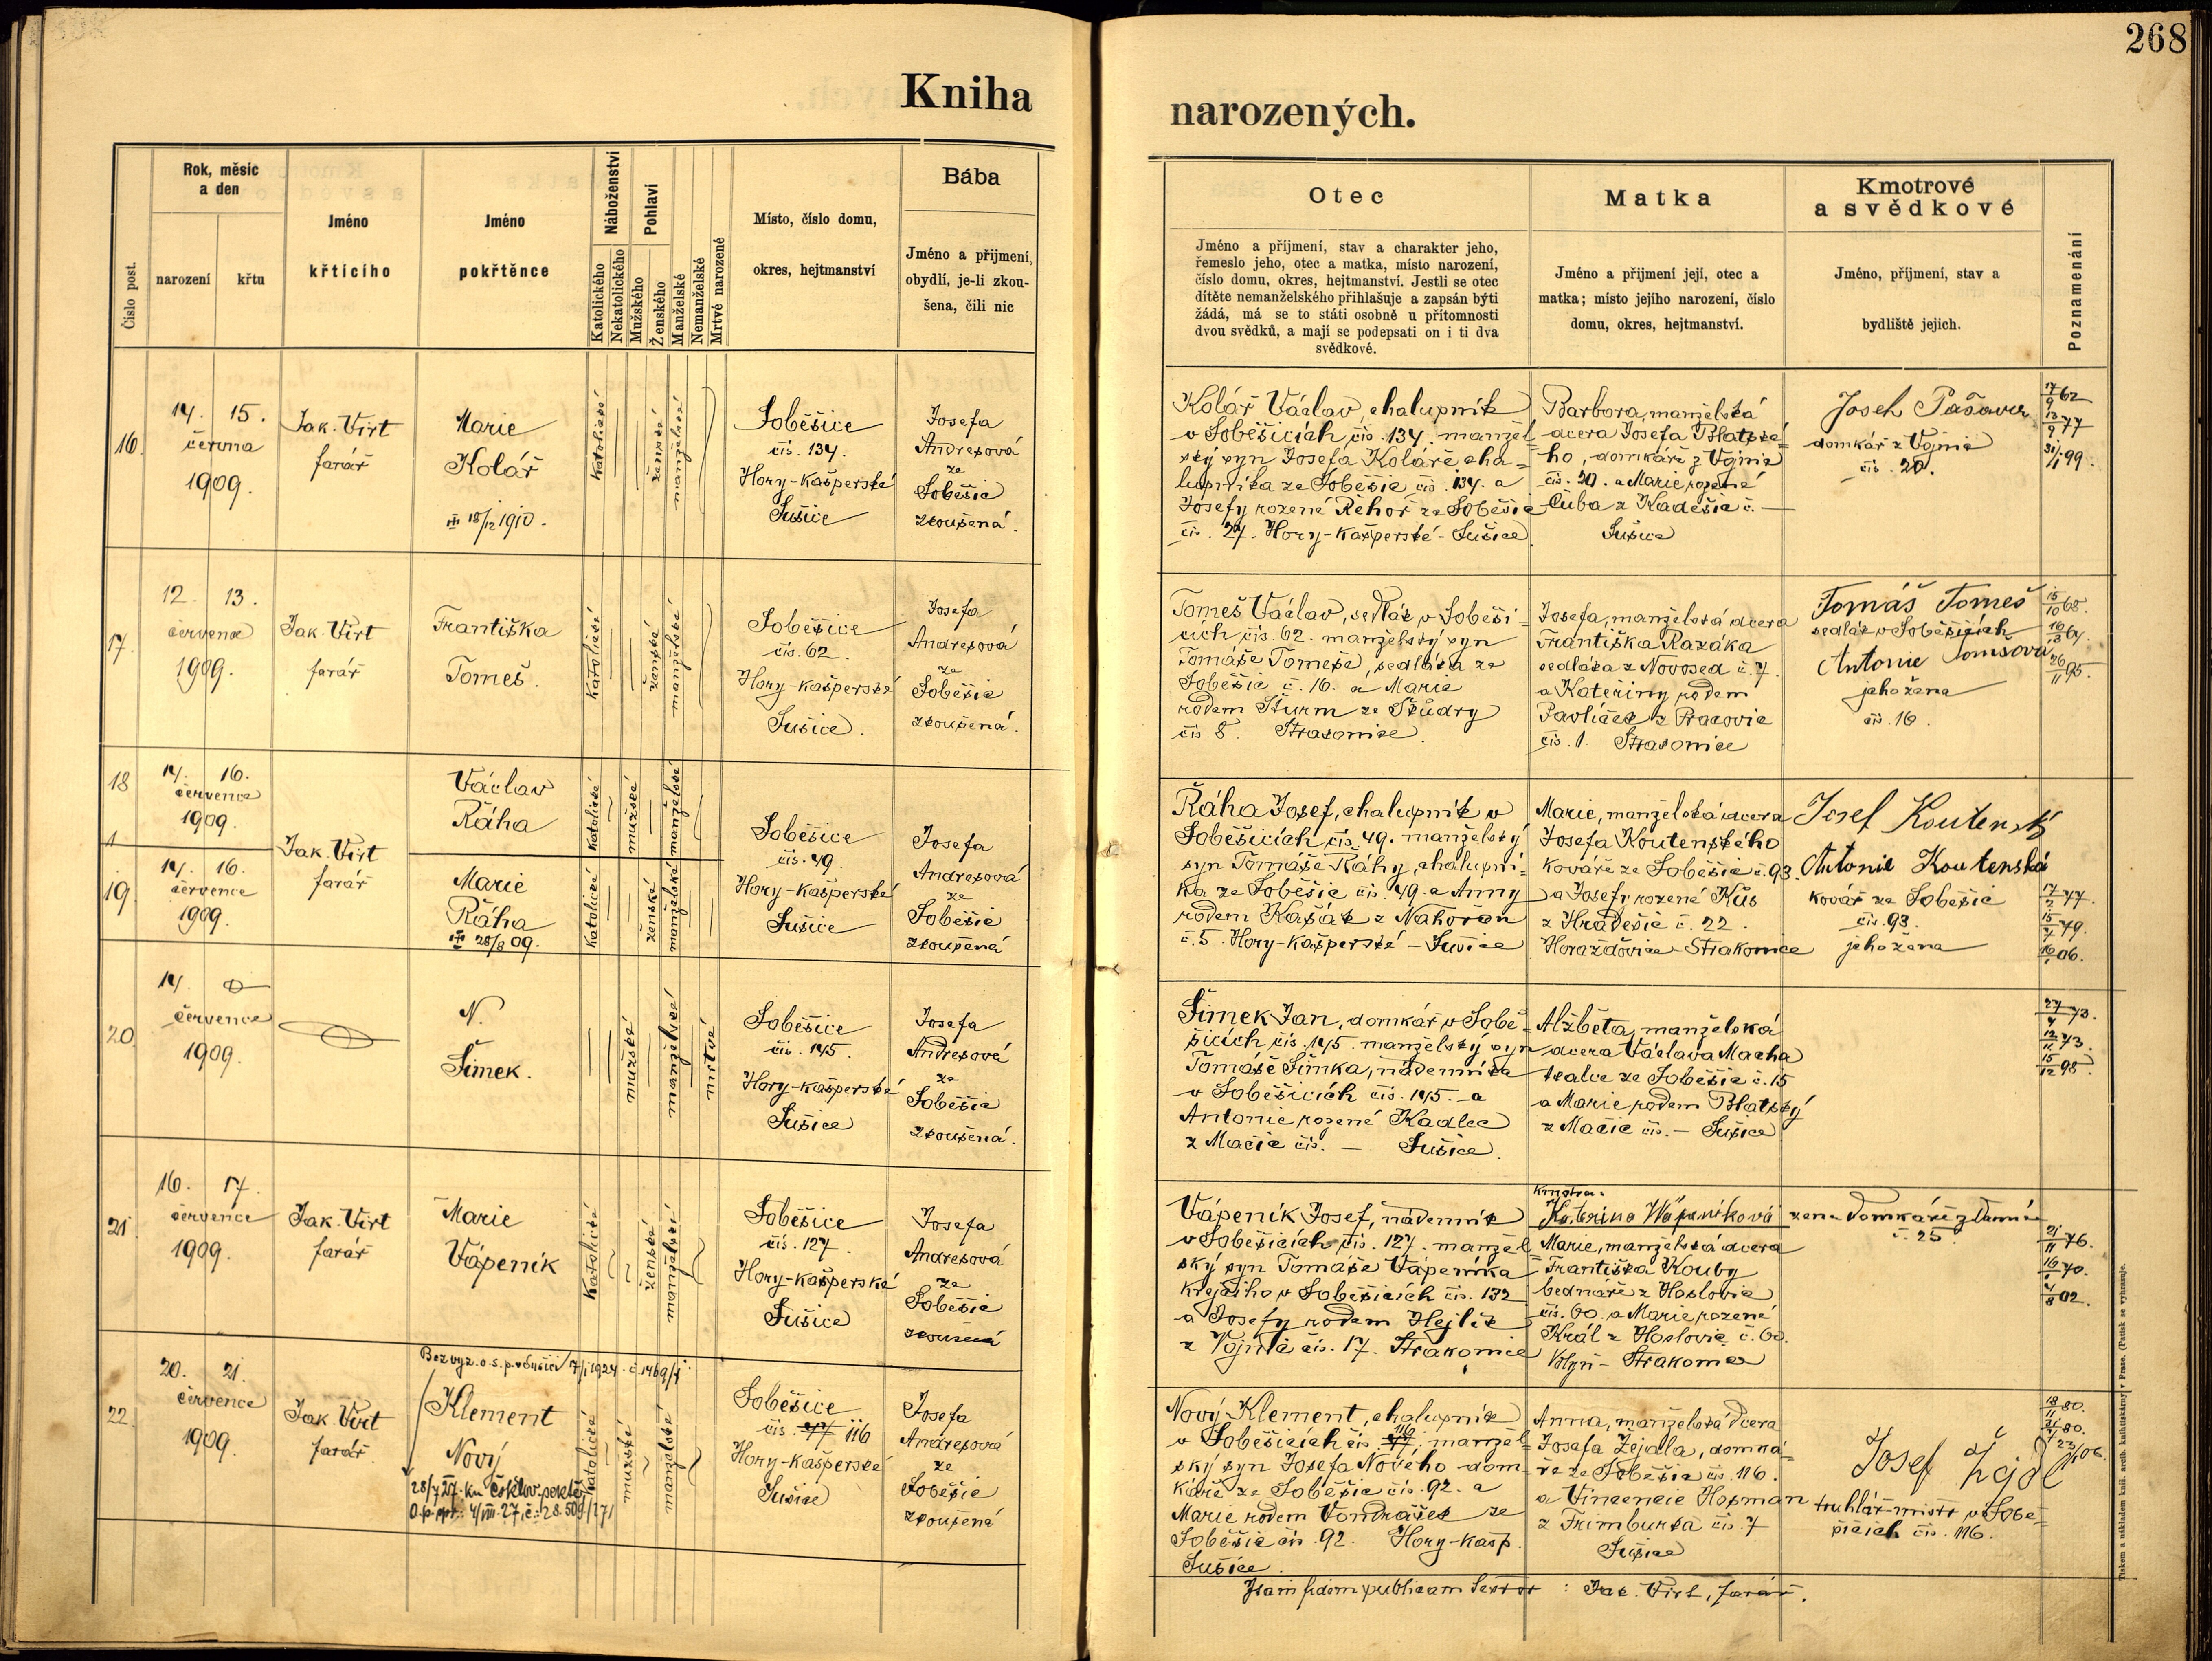 268
Kniha
narozených.
Číslo post.
Rok, měsíc
a den
narození
křtu
Jméno
křtícího
Jméno
pokřtěnce
Náboženství
Katolického
Nekatolického
Pohlaví
Mužského
Ženského
Manželské
Nemanželské
Mrtvé narozené
Místo, číslo domu,
okres, hejtmanství
Bába
Jméno a přijmení,
obydlí, je-li zkou-
šena, čili nic
Otec
Jméno a příjmení, stav a charakter jeho,
řemeslo jeho, otec a matka, místo narození,
číslo domu, okres, hejtmanství. Jestli se otec
dítěte nemanželského přihlašuje a zapsán býti
žádá, má se to státi osobně u přítomnosti
dvou svědků, a mají se podepsati on i ti dva
svědkové.
Matka
Jméno a přijmení její, otec a
matka; místo jejího narození, číslo
domu, okres, hejtmanství.
Kmotrové
a svědkové
Jméno, příjmení, stav a
bydliště jejich.
Poznamenání
16.
14. 15.
června
1909.
Jak. Virt
farář
Marie
Kolář
18/12 1910.
katolické
ženské
manželské
Soběšice
čís. 134.
Hory-Kašperské
Sušice
Josefa
Andresová
ze
Soběšic
zkoušená.
Kolář Václav, chalupník
v Soběšicích čís. 134. manžel
ský syn Josefa Koláře, cha=
lupníka ze Soběšic čís. 134. a
Josefy rozené Řehoř ze Soběšic
čís. 27. Hory-Kašperské-Sušice
Barbora, manželská
dcera Josefa Blatské=
ho, domkáře z Vojnic
čís. 20. a Marie rozené
Cuba z Kadešic č. —
Sušice
Josef Pašava
domkář z Vojnic
čís. 20.
17/9 62
13/9 77
31/1 99.
17.
12. 13.
července
1909.
Jak. Virt
farář
Františka
Tomeš.
katolické
ženské
manželské
Soběšice
čís. 62.
Hory-Kašperské
Sušice.
Josefa
Andresová
ze
Soběšic
zkoušená.
Tomeš Václav, sedlák v Soběši=
cích čís. 62. manželský syn
Tomáše Tomeše, sedláka ze
Soběšic č. 16. a Marie
rodem Šturm ze Škudry
čís. 8. Strakonice
Josefa, manželská dcera
Františka Kazáka
sedláka z Novosed č. 7.
a Kateřiny rodem
Pavlíček z Pracovic
čís. 1. Strakonice
Tomáš Tomeš
sedlák v Soběšicích
Antonie Tomšová
jeho žena
čís. 16.
15/10 68.
26/11 95.
18
14. 16.
července
1909.
Jak. Virt
farář
Václav
Ráha
katolické
mužské
manželské
19
14. 16.
července
1909.
Marie
Ráha
28/8 09.
katolické
ženské
manželské
Soběšice
čís. 49.
Hory-Kašperské
Sušice
Josefa
Andresová
ze
Soběšic
zkoušená
Ráha Josef, chalupník v
Soběšicích čís. 49. manželský
syn Tomáše Ráhy, chalupní-
ka ze Soběšic čís. 49. a Anny
rodem Kašák z Nahořan
č. 5. Hory-Kašperské - Sušice
Marie, manželská dcera
Josefa Koutenského
kováře ze Soběšic č. 93.
a Josefy rozené Kůs
z Hradešic č. 22.
Horažďovice - Strakonice
Josef Koutenský
Antonie Koutenská
kovář ze Soběšic
čís. 93.
jeho žena
17/2 77.
15/7 79.
20
14.
července
1909.
N.
Šimek.
mužské
manželské
mrtvé
Soběšice
čís. 145.
Hory-Kašperské
Sušice
Josefa
Andresová
ze
Soběšic
zkoušená.
Šimek Jan, domkář v Sobě=
šicích čís. 145. manželský syn
Tomáše Šimka, nádeníka
v Soběšicích čís. 145. a
Antonie rozené Kadlec
z Mačic čís. — Sušice.
Alžběta, manželská
dcera Václava Macha
tkalce ze Soběšic č. 15
a Marie rodem Blatský
z Mačic čís. — Sušice
27/4 73.
12/11 73.
15/12 98.
21
16. 17.
července
1909.
Jak. Virt
farář
Marie
Vápeník
katolické
ženské
manželské
Soběšice
čís. 127.
Hory-Kašperské
Sušice
Josefa
Andresová
ze
Soběšic
zkoušená
Vápeník Josef, nádeník
v Soběšicích čís. 127. manžel
ský syn Tomáše Vápeníka
krejčího v Soběšicích čís. 132
a Josefy rodem Hejlík
z Vojnic čís. 17. Strakonice
Kmotra:
Kateřina Wápeníková žena domkáře z
č. 25.
Marie, manželská dcera
Františka Kouby
bednáře z Hoslovic
čís. 60. a Marie rozené
Král z Hoslovic č. 60.
Volyň - Strakonice
21/11 76.
4/8 02.
22.
20. 21.
července
1909.
Jak. Virt
farář.
Bez vyz. o. s. p. v Sušici 17/1 1924. č. 1469/1
Klement
Nový
katolické
mužské
manželské
Soběšice
čís. 47 116
Hory-Kašperské
Sušice
Josefa
Andresová
ze
Soběšic
zkoušená
Nový Klement, chalupník
v Soběšicích čís. 47 116, manžel=
ský syn Josefa Nového dom-
káře ze Soběšic čís. 92. a
Marie rodem Vondrášek ze
Soběšic čís. 92. Hory-Kašp.
Sušice.
Anna, manželská dcera
Josefa Žejdla, domká=
ře ze Soběšic čís. 116.
a Vincencie Hosman
z Frimburka čís. 7
Sušice
Josef Žejdl
truhlář-mistr v Sobě=
šicích čís. 116.
18/11 80.
In fidem publicam
Jak. Virt, farář.
Tiskem a nákladem knih. arcib. knihtiskárny v Praze. (Patisk se vyhrazuje.